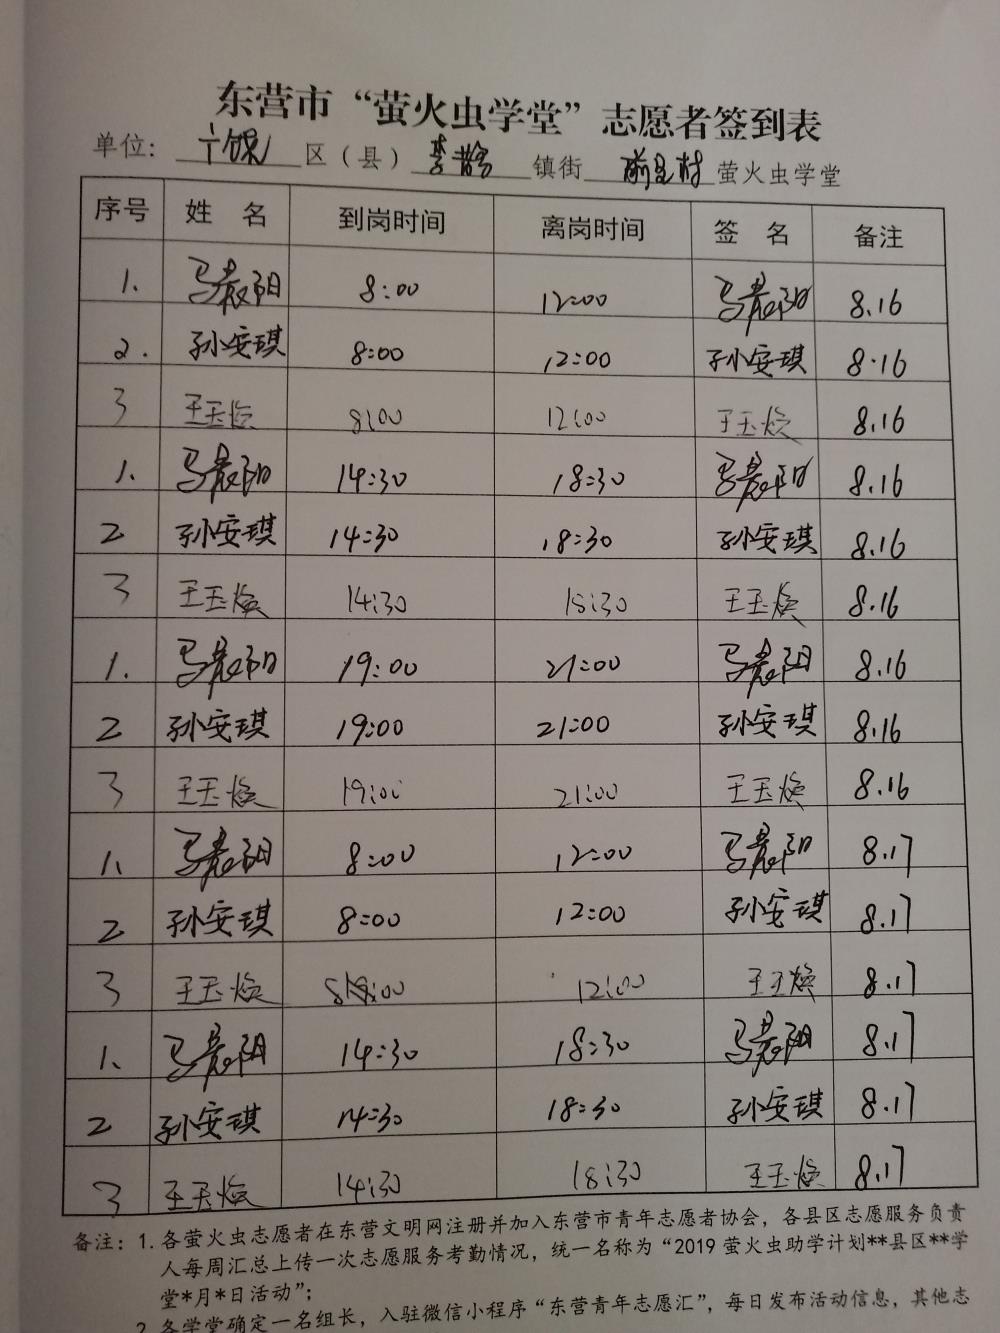 东营市“萤火虫学堂”志愿者签到表
单位： 广饶 区（县） 李鹊 镇街 村 萤火虫学堂
序号 姓 名 到岗时间 离岗时间 签 名 备注
1. 马晨阳 8:00 12:00 马晨阳 8.16
2. 孙安琪 8:00 12:00 孙安琪 8.16
3 王玉焕 8:00 12:00 王玉焕 8.16
1. 马晨阳 14:30 18:30 马晨阳 8.16
2 孙安琪 14:30 18:30 孙安琪 8.16
3 王玉焕 14:30 18:30 王玉焕 8.16
1. 马晨阳 19:00 21:00 马晨阳 8.16
2 孙安琪 19:00 21:00 孙安琪 8.16
3 王玉焕 19:00 21:00 王玉焕 8.16
1. 马晨阳 8:00 12:00 马晨阳 8.17
2 孙安琪 8:00 12:00 孙安琪 8.17
3 王玉焕 8:00 12:00 王玉焕 8.17
1. 马晨阳 14:30 18:30 马晨阳 8.17
2 孙安琪 14:30 18:30 孙安琪 8.17
3 王玉焕 14:30 18:30 王玉焕 8.17
备注：1. 各萤火虫志愿者在东营文明网注册并加入东营市青年志愿者协会，各县区志愿服务负责
人每周汇总上传一次志愿服务考勤情况，统一名称为“2019 萤火虫助学计划**县区**学
堂*月*日活动”；
2. 各学堂确定一名组长，入驻微信小程序“东营青年志愿汇”，每日发布活动信息，其他志